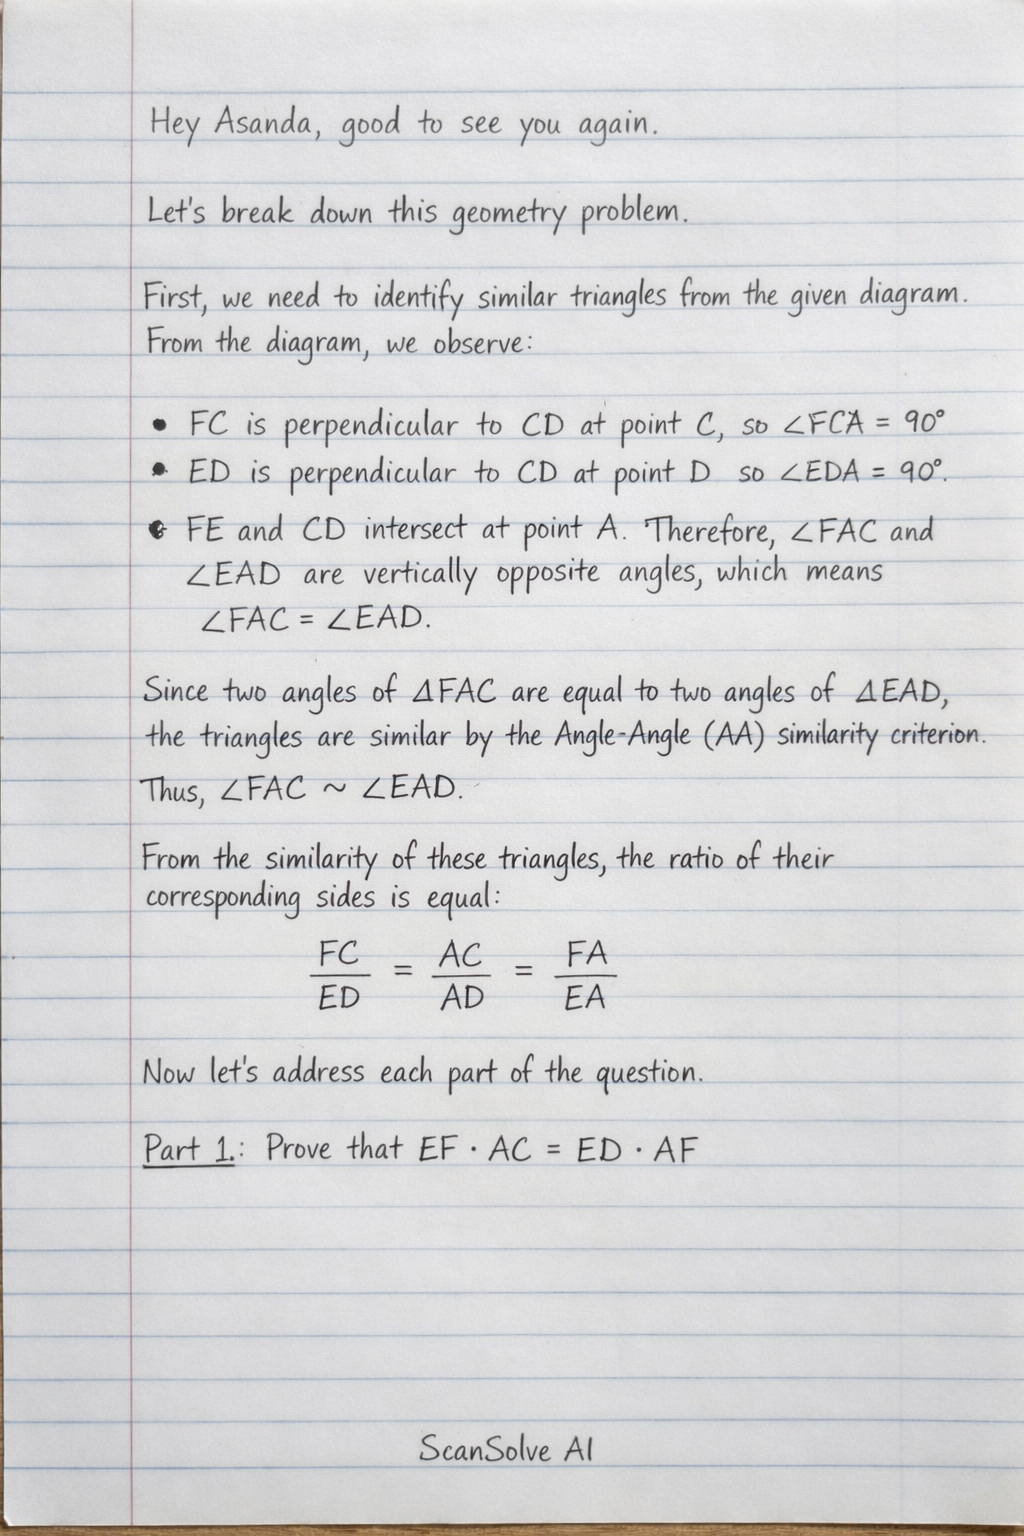 Hey Asanda, good to see you again.
Let's break down this geometry problem.
First, we need to identify similar triangles from the given diagram.
From the diagram, we observe:
• FC is perpendicular to CD at point C, so ∠FCA = 90°
• ED is perpendicular to CD at point D so ∠EDA = 90°.
• FE and CD intersect at point A. Therefore, ∠FAC and
∠EAD are vertically opposite angles, which means
∠FAC = ∠EAD.
Since two angles of ΔFAC are equal to two angles of ΔEAD,
the triangles are similar by the Angle-Angle (AA) similarity criterion.
Thus, ∠FAC ~ ∠EAD.
From the similarity of these triangles, the ratio of their
corresponding sides is equal:
FC/ED = AC/AD = FA/EA
Now let's address each part of the question.
Part 1.: Prove that EF · AC = ED · AF
ScanSolve AI